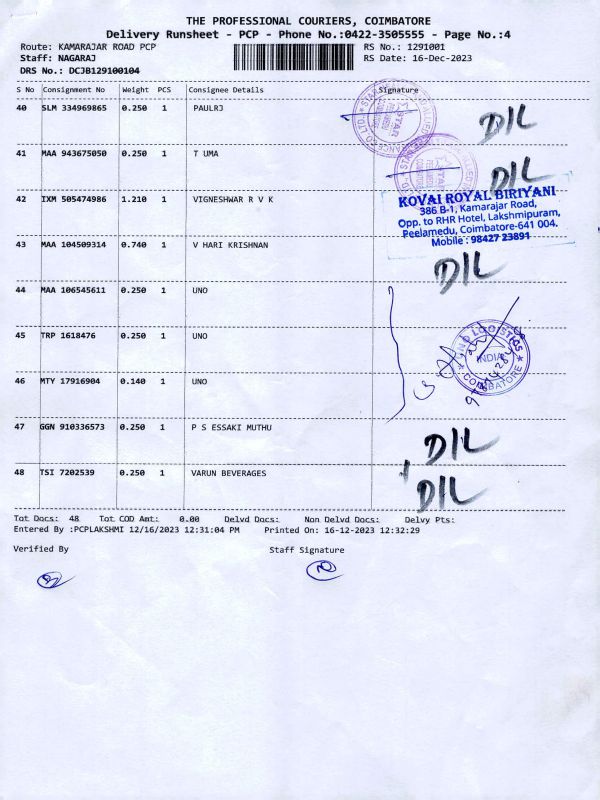 THE PROFESSIONAL COURIERS, COIMBATORE
Delivery Runsheet - PCP - Phone No.:0422-3505555 - Page No.:4
Route: KAMARAJAR ROAD PCP RS No.: 1291001
Staff: NAGARAJ RS Date: 16-Dec-2023
DRS No.: DCJB129100104
S No Consignment No Weight PCS Consignee Details Signature
40 SLM 334969865 0.250 1 PAULRJ D/L
41 MAA 943675050 0.250 1 T UMA D/L
42 IXM 505474986 1.210 1 VIGNESHWAR R V K
KOVAI ROYAL BIRIYANI
386 B-1, Kamarajar Road,
Opp. to RHR Hotel, Lakshmipuram,
Peelamedu, Coimbatore-641 004.
Mobile : 98427 23891
43 MAA 104509314 0.740 1 V HARI KRISHNAN D/L
44 MAA 106545611 0.250 1 UNO
45 TRP 1618476 0.250 1 UNO
UNO LOGISTICS
INDIA
COIMBATORE
46 MTY 17916904 0.140 1 UNO
47 GGN 910336573 0.250 1 P S ESSAKI MUTHU D/L
48 TSI 7202539 0.250 1 VARUN BEVERAGES D/L
Tot Docs: 48 Tot COD Amt: 0.00 Delvd Docs: Non Delvd Docs: Delvy Pts:
Entered By :PCPLAKSHMI 12/16/2023 12:31:04 PM Printed On: 16-12-2023 12:32:29
Verified By Staff Signature